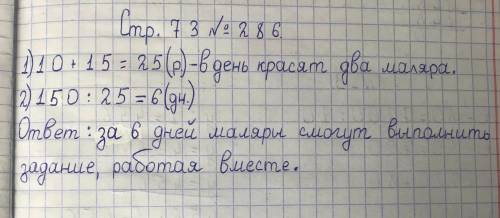 Стр. 73 № 286.
1) 10 + 15 = 25 (р) - в день красят два маляра.
2) 150 : 25 = 6 (дн.)
Ответ : за 6 дней маляры смогут выполнить
задание, работая вместе.